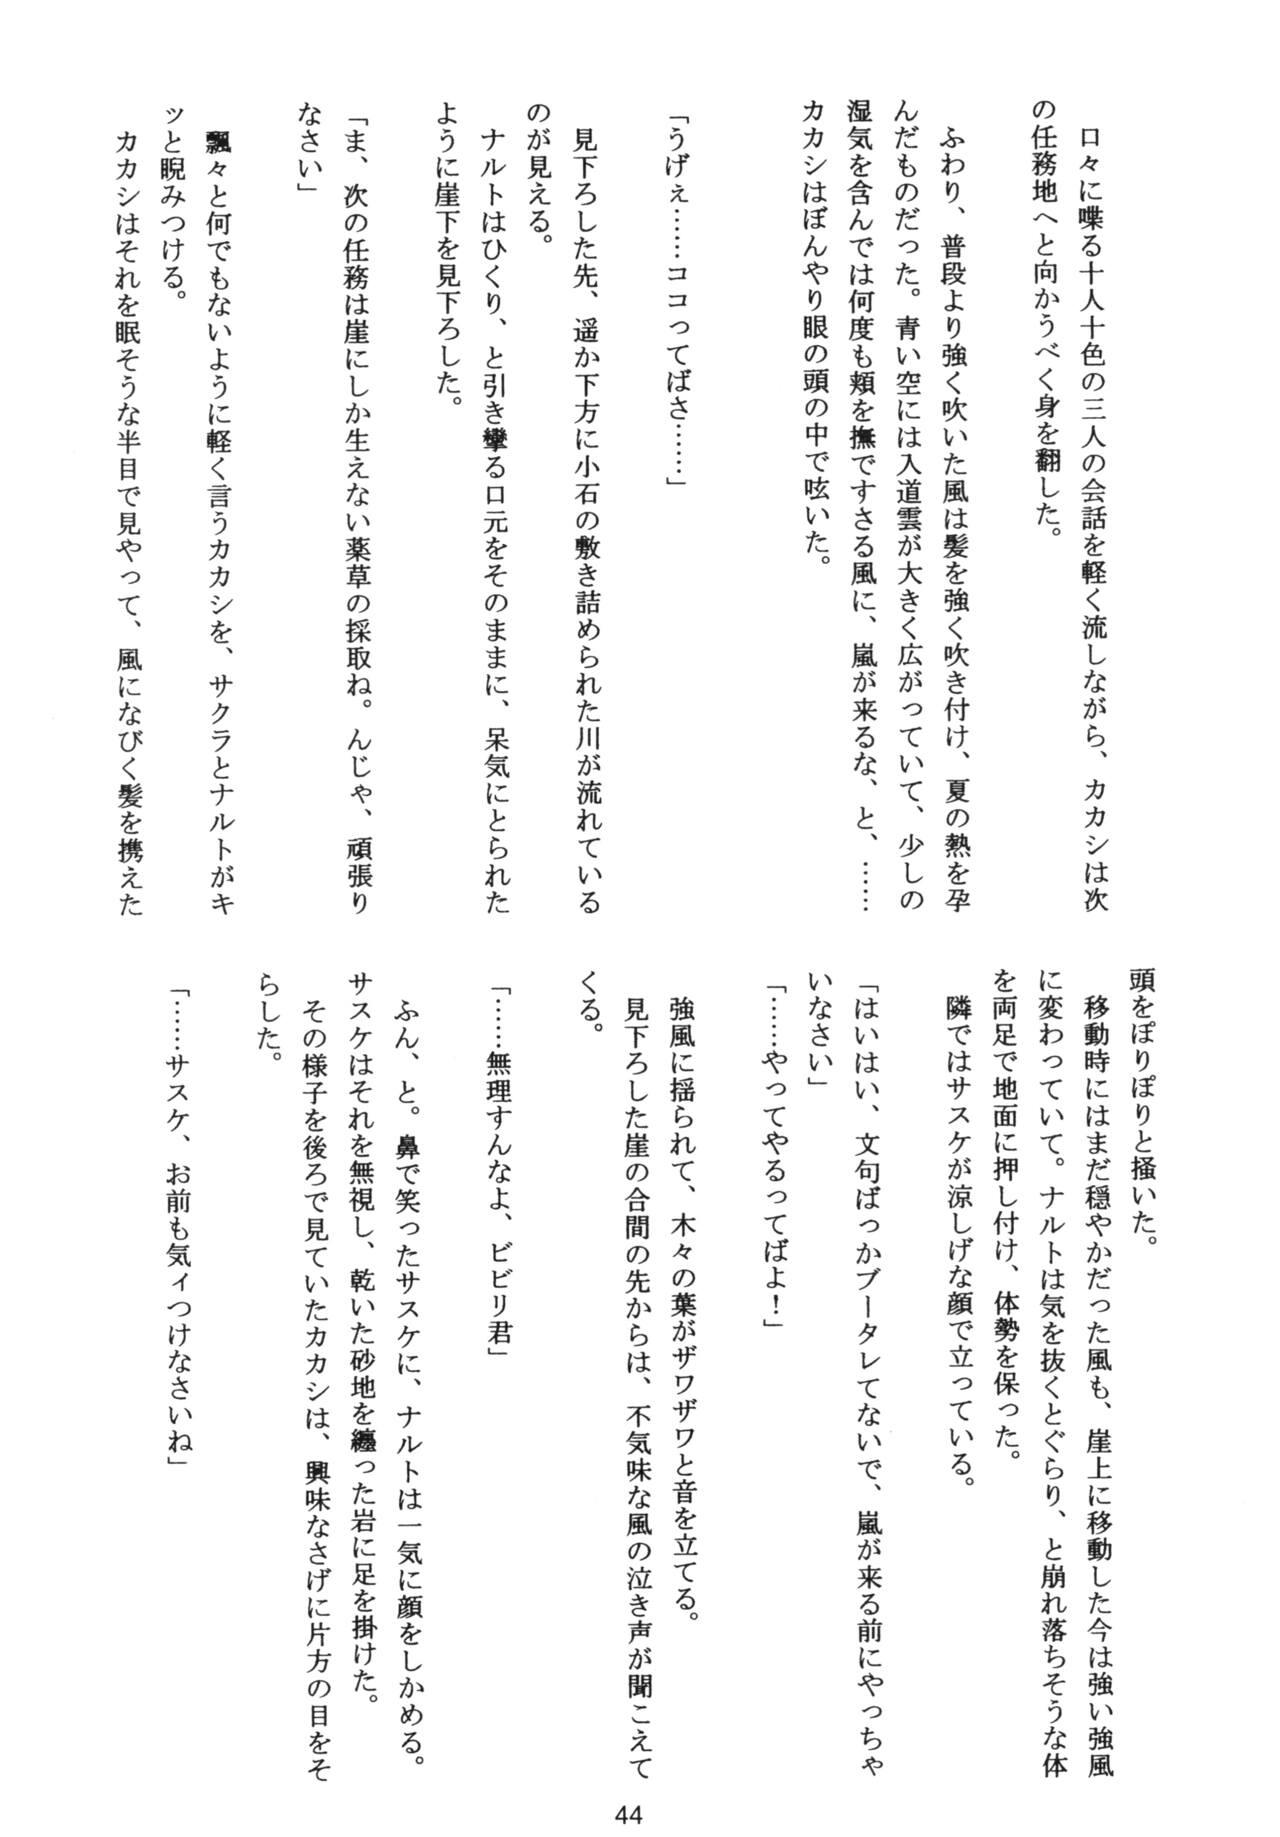 口々に喋る十人十色の三人の会話を軽く流しながら、カカシは次
の任務地へと向かうべく身を翻した。
ふわり、普段より強く吹いた風は髪を強く吹き付け、夏の熱を孕
んだものだった。青い空には入道雲が大きく広がっていて、少しの
湿気を含んでは何度も頬を撫ですさる風に、嵐が来るな、と、……
カカシはぼんやり眼の頭の中で呟いた。
「うげぇ……ココってばさ……」
見下ろした先、遥か下方に小石の敷き詰められた川が流れている
のが見える。
ナルトはひくり、と引き攣る口元をそのままに、呆気にとられた
ように崖下を見下ろした。
「ま、次の任務は崖にしか生えない薬草の採取ね。んじゃ、頑張り
なさい」
飄々と何でもないように軽く言うカカシを、サクラとナルトがキ
ッと睨みつける。
カカシはそれを眠そうな半目で見やって、風になびく髪を携えた
頭をぽりぽりと掻いた。
移動時にはまだ穏やかだった風も、崖上に移動した今は強い強風
に変わっていて。ナルトは気を抜くとぐらり、と崩れ落ちそうな体
を両足で地面に押し付け、体勢を保った。
隣ではサスケが涼しげな顔で立っている。
「はいはい、文句ばっかブータレてないで、嵐が来る前にやっちゃ
いなさい」
「……やってやるってばよ！」
強風に揺られて、木々の葉がザワザワと音を立てる。
見下ろした崖の合間の先からは、不気味な風の泣き声が聞こえて
くる。
「……無理すんなよ、ビビリ君」
ふん、と。鼻で笑ったサスケに、ナルトは一気に顔をしかめる。
サスケはそれを無視し、乾いた砂地を纏った岩に足を掛けた。
その様子を後ろで見ていたカカシは、興味なさげに片方の目をそ
らした。
「……サスケ、お前も気ィつけなさいね」
44